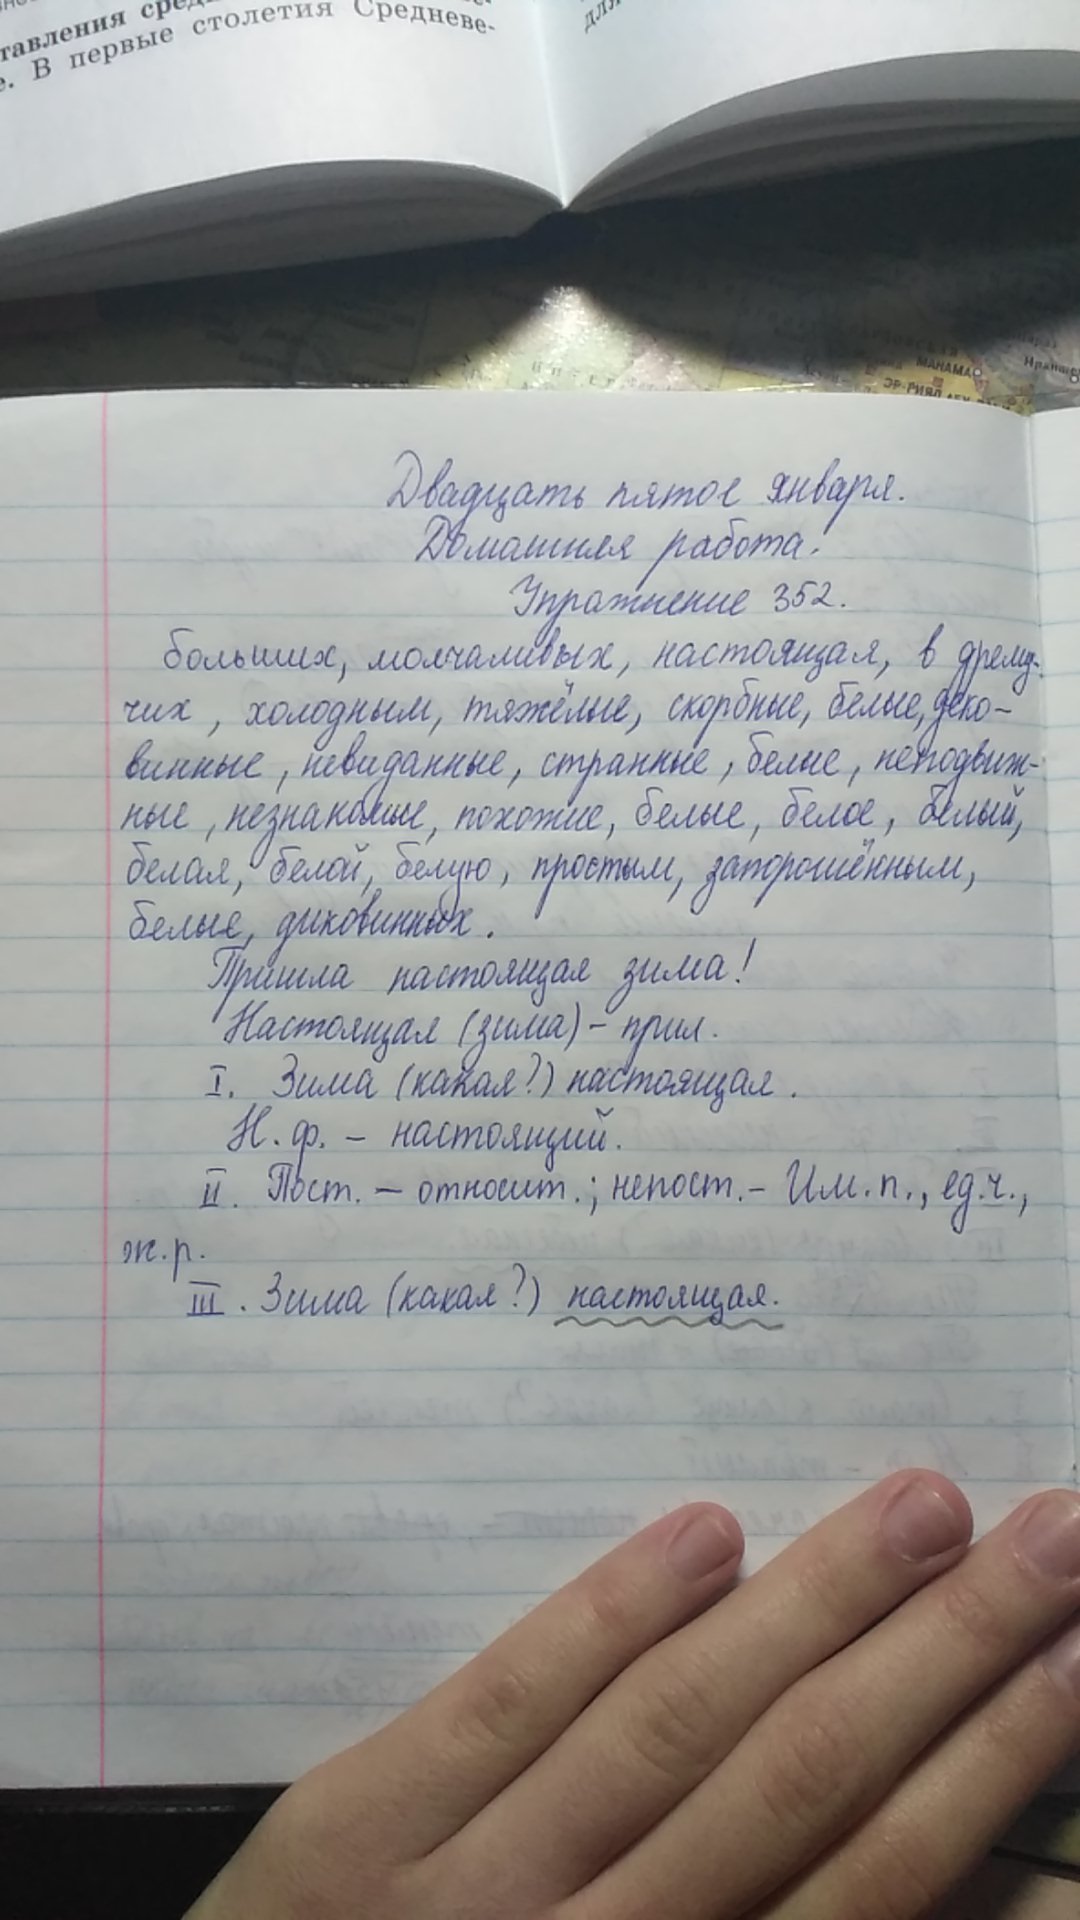 тавления сред
е. В первые столетия Средневе-
для
МАНАМА
ЭР-РИЯД
Двадцать пятое января.
Домашняя работа.
Упражнение 352.
больших, молчаливых, настоящая, в дрему-
чих, холодным, тяжёлые, скорбные, белые, деко-
винные, невиданные, странные, белые, неподвиж-
ные, незнакомые, похожие, белые, белое, белый,
белая, белой, белую, простым, запорошённым,
белые, диковинных.
Пришла настоящая зима!
Настоящая (зима) - прил.
I. Зима (какая?) настоящая.
Н. ф. - настоящий.
II. Пост. - относит.; непост. - Им. п., ед.ч.,
ж.р.
III. Зима (какая?) настоящая.